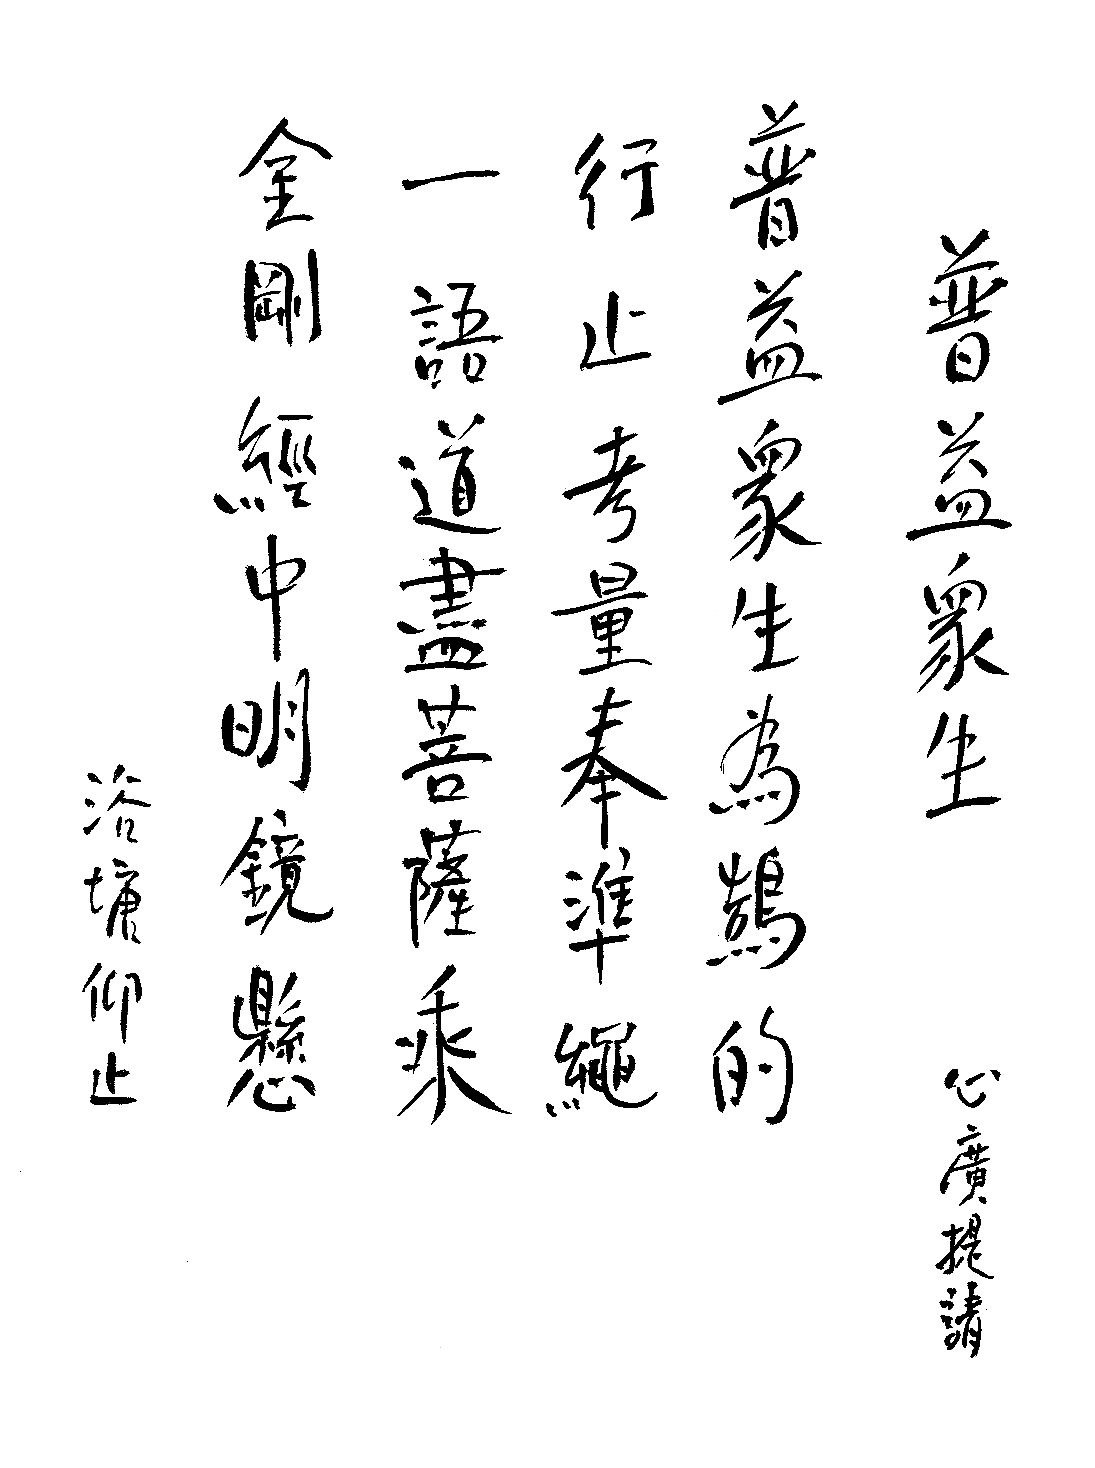 普益眾生 心廣提請
普益眾生為鵠的
行止考量奉準繩
一語道盡菩薩乘
金剛經中明鏡懸
浴墉仰止